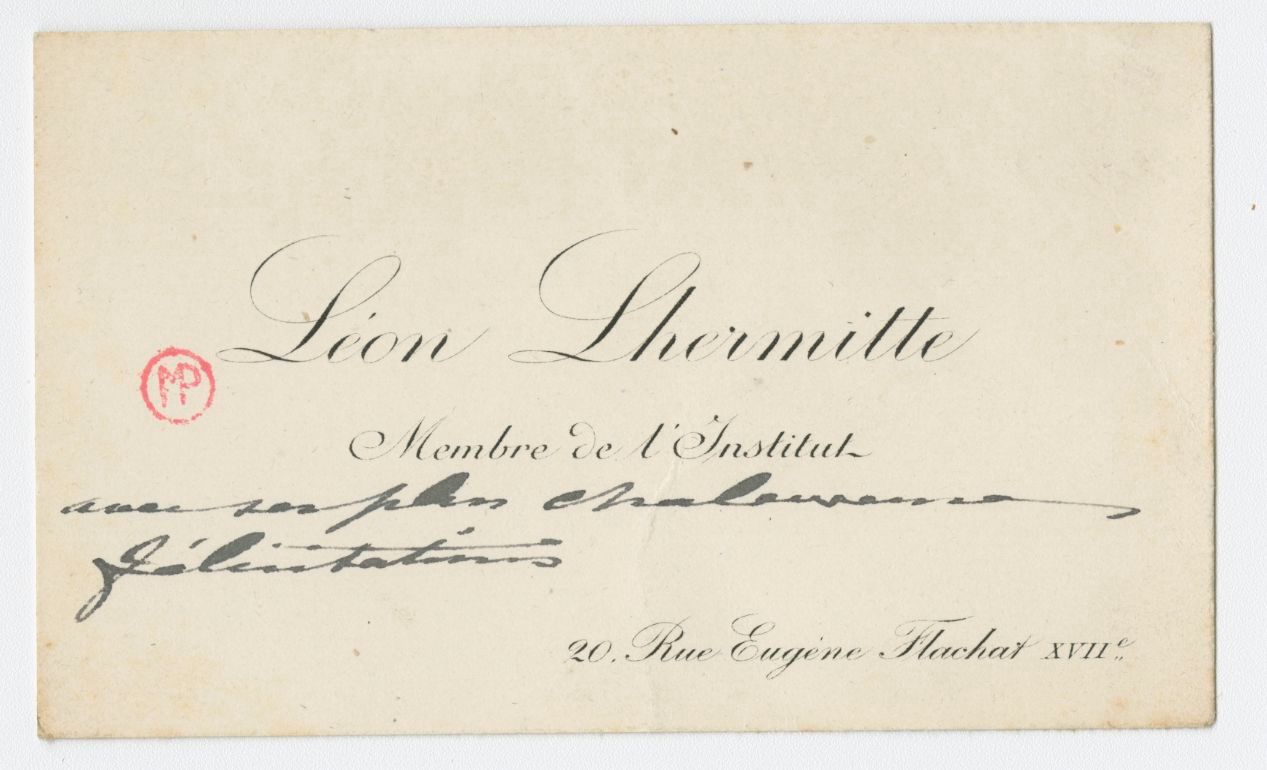 Léon Lhermitte
MP
Membre de l'Institut
avec ses plus chaleureuses
félicitations
20. Rue Eugène Flachat XVIIe.